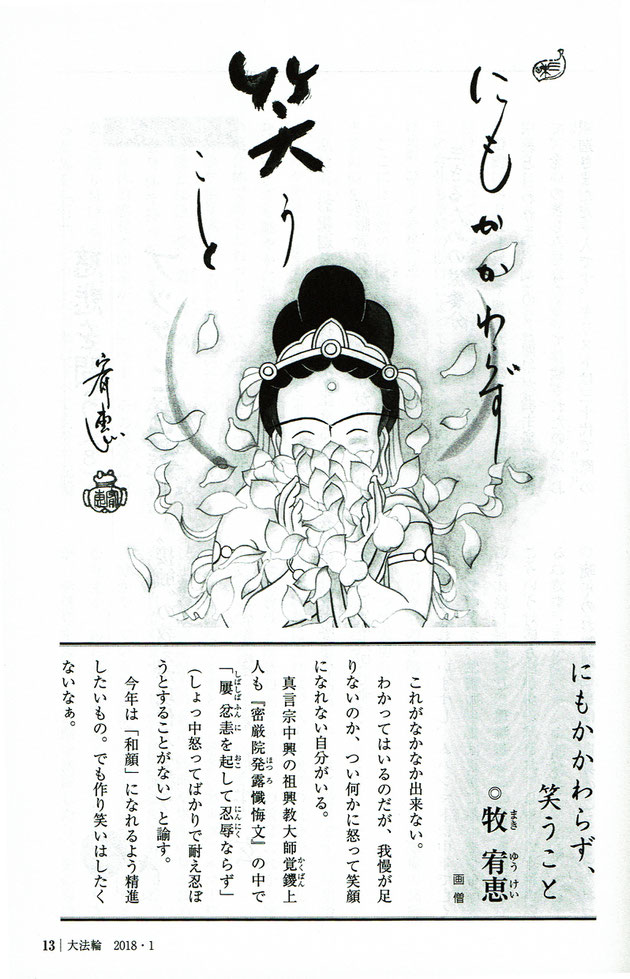 にもかかわらず
笑う
こと
宥恵
にもかかわらず、
笑うこと
◎牧 宥恵
まき ゆうけい
画僧
これがなかなか出来ない。
わかってはいるのだが、我慢が足
りないのか、つい何かに怒って笑顔
になれない自分がいる。
真言宗中興の祖興教大師覚鑁上
かくばん
人も『密厳院発露懺悔文』の中で
ほつろ
「屢忿恚を起して忍辱ならず」
しばしばふんに おこ にんにく
(しょっ中怒ってばかりで耐え忍ぼ
うとすることがない)と諭す。
今年は「和顔」になれるよう精進
したいもの。でも作り笑いはしたく
ないなぁ。
13 | 大法輪 2018・1